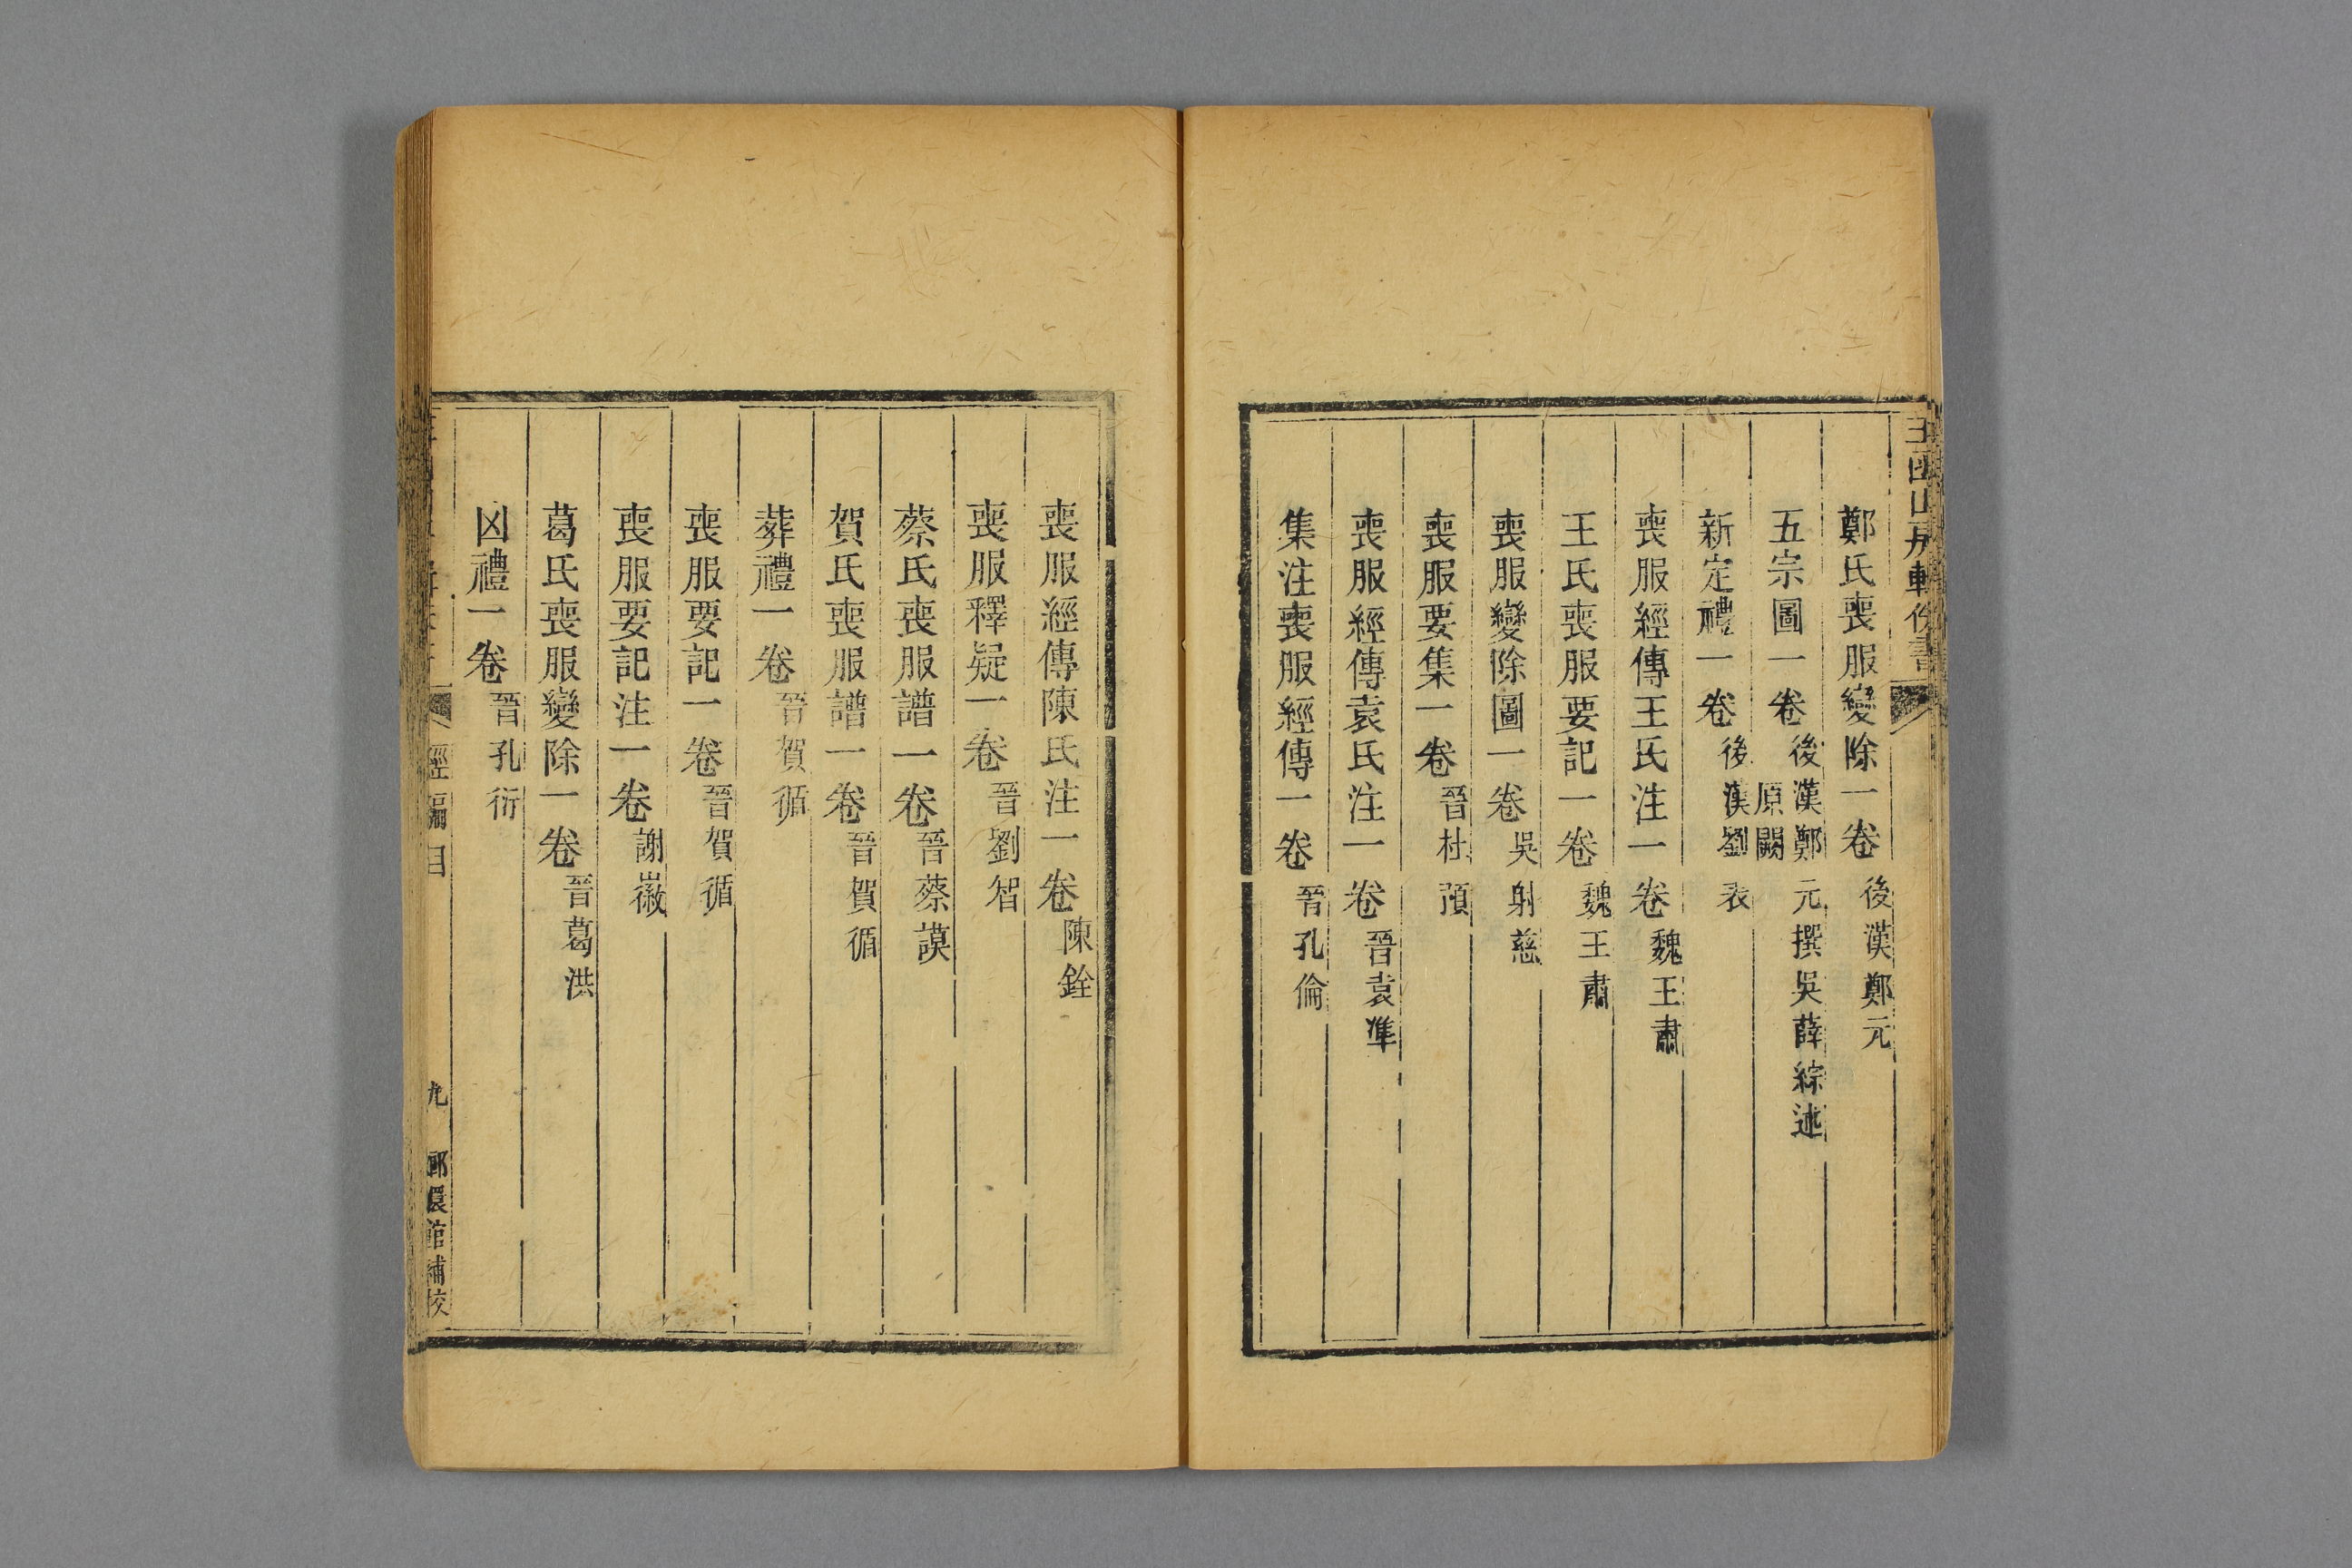 玉函山房輯佚書
鄭氏喪服變除一卷 後漢鄭元
五宗圖一卷 後漢鄭元撰吳薛綜述 原闕
新定禮一卷 後漢劉表
喪服經傳王氏注一卷 魏王肅
王氏喪服要記一卷 魏王肅
喪服變除圖一卷 吳射慈
喪服要集一卷 晉杜預
喪服經傳袁氏注一卷 晉袁準
集注喪服經傳一卷 晉孔倫
喪服經傳陳氏注一卷 陳銓
喪服釋疑一卷 晉劉智
蔡氏喪服譜一卷 晉蔡謨
賀氏喪服譜一卷 晉賀循
葬禮一卷 晉賀循
喪服要記一卷 晉賀循
喪服要記注一卷 謝徽
葛氏喪服變除一卷 晉葛洪
凶禮一卷 晉孔衍
經編目 九 館補校